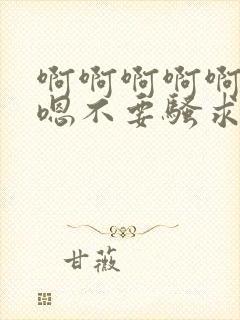 啊啊啊啊啊
嗯不要骚求
甘薇